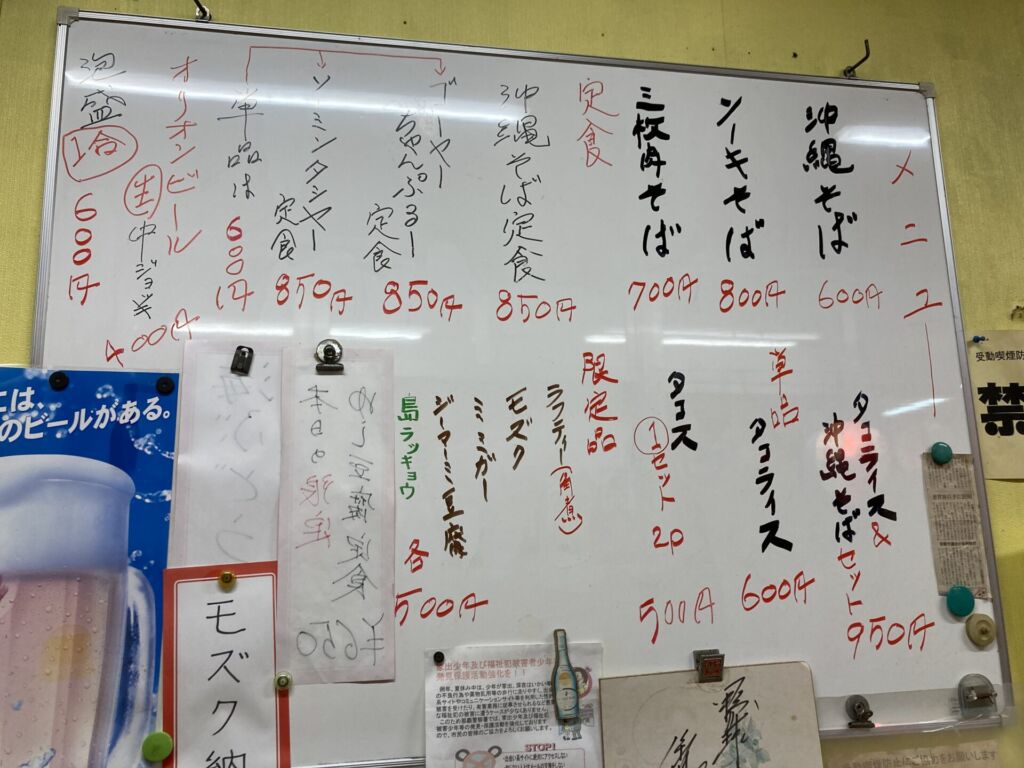 メニュー
沖縄そば
600円
ソーキそば
800円
三枚肉そば
700円
定食
沖縄そば定食
850円
ゴーヤー
ちゃんぷるー
定食
850円
ソーミンタシヤー
定食
850円
単品は
600円
オリオンビール
生 中ジョッキ
400円
泡盛
1合
600円
タコライス&
沖縄そばセット
950円
単品
タコライス
600円
タコス
1セット 2p
500円
限定品
ラフティー(角煮)
モズク
ミミガー
ジーマーミ豆腐
島ラッキョウ
各
500円
ゆし豆腐定食
本日の限定
¥650
海ぶどう
モズク
には
のビールがある。
受動喫煙防
禁
家出少年及び福祉犯被害者少年
発見保護活動強化を!!
STOP!